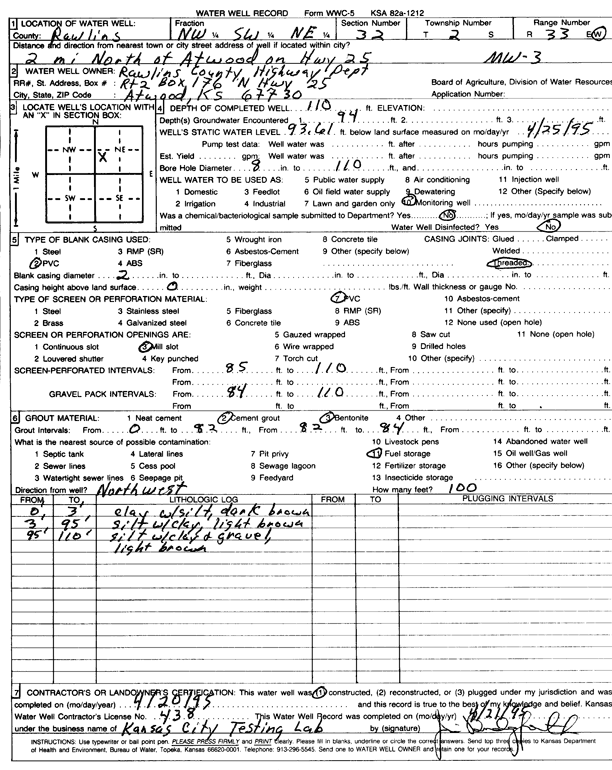 WATER WELL RECORD Form WWC-5 KSA 82a-1212
1 LOCATION OF WATER WELL: Fraction Section Number Township Number Range Number
County: Rawlins NW ¼ SW ¼ NE ¼ 32 T 2 S R 33 E/W
Distance and direction from nearest town or city street address of well if located within city?
2 mi North of Atwood on Hwy 25 MW-3
2 WATER WELL OWNER: Rawlins County Highway Dept
RR#, St. Address, Box # : Rt 2 Box 176 N Hwy 25 Board of Agriculture, Division of Water Resources
City, State, ZIP Code : Atwood, KS 67730 Application Number:
3 LOCATE WELL'S LOCATION WITH AN "X" IN SECTION BOX:
N
NW NE
X
W E
SW SE
S
1 Mile
4 DEPTH OF COMPLETED WELL. 110 ft. ELEVATION:
Depth(s) Groundwater Encountered 1. 94 ft. 2. ft. 3. ft.
WELL'S STATIC WATER LEVEL 93.61 ft. below land surface measured on mo/day/yr 4/25/95
Pump test data: Well water was ft. after hours pumping gpm
Est. Yield gpm Well water was ft. after hours pumping gpm
Bore Hole Diameter 8 in. to 110 ft., and in. to ft.
WELL WATER TO BE USED AS: 5 Public water supply 8 Air conditioning 11 Injection well
1 Domestic 3 Feedlot 6 Oil field water supply 9 Dewatering 12 Other (Specify below)
2 Irrigation 4 Industrial 7 Lawn and garden only 10 Monitoring well
Was a chemical/bacteriological sample submitted to Department? Yes No ; If yes, mo/day/yr sample was submitted
Water Well Disinfected? Yes No
5 TYPE OF BLANK CASING USED: 5 Wrought iron 8 Concrete tile CASING JOINTS: Glued Clamped
1 Steel 3 RMP (SR) 6 Asbestos-Cement 9 Other (specify below) Welded
2 PVC 4 ABS 7 Fiberglass Threaded
Blank casing diameter 2 in. to ft., Dia in. to ft., Dia in. to ft.
Casing height above land surface 0 in., weight lbs./ft. Wall thickness or gauge No.
TYPE OF SCREEN OR PERFORATION MATERIAL: 7 PVC 10 Asbestos-cement
1 Steel 3 Stainless steel 5 Fiberglass 8 RMP (SR) 11 Other (specify)
2 Brass 4 Galvanized steel 6 Concrete tile 9 ABS 12 None used (open hole)
SCREEN OR PERFORATION OPENINGS ARE: 5 Gauzed wrapped 8 Saw cut 11 None (open hole)
1 Continuous slot 3 Mill slot 6 Wire wrapped 9 Drilled holes
2 Louvered shutter 4 Key punched 7 Torch cut 10 Other (specify)
SCREEN-PERFORATED INTERVALS: From 85 ft. to 110 ft., From ft. to ft.
From ft. to ft., From ft. to ft.
GRAVEL PACK INTERVALS: From 84 ft. to 110 ft., From ft. to ft.
From ft. to ft., From ft. to ft.
6 GROUT MATERIAL: 1 Neat cement 2 Cement grout 3 Bentonite 4 Other
Grout Intervals: From 0 ft. to 82 ft., From 82 ft. to 84 ft., From ft. to ft.
What is the nearest source of possible contamination: 10 Livestock pens 14 Abandoned water well
1 Septic tank 4 Lateral lines 7 Pit privy 11 Fuel storage 15 Oil well/Gas well
2 Sewer lines 5 Cess pool 8 Sewage lagoon 12 Fertilizer storage 16 Other (specify below)
3 Watertight sewer lines 6 Seepage pit 9 Feedyard 13 Insecticide storage
Direction from well? Northwest How many feet? 100
FROM TO LITHOLOGIC LOG FROM TO PLUGGING INTERVALS
0' 3' clay w/silt, dark brown
3' 95' silt w/clay, light brown
95' 110' silt w/clay & gravel,
light brown
7 CONTRACTOR'S OR LANDOWNER'S CERTIFICATION: This water well was (1) constructed, (2) reconstructed, or (3) plugged under my jurisdiction and was
completed on (mo/day/year) 4/20/95 and this record is true to the best of my knowledge and belief. Kansas
Water Well Contractor's License No. 438 This Water Well Record was completed on (mo/day/yr)
under the business name of Kansas City Testing Lab by (signature)
INSTRUCTIONS: Use typewriter or ball point pen. PLEASE PRESS FIRMLY and PRINT clearly. Please fill in blanks, underline or circle the correct answers. Send top three copies to Kansas Department
of Health and Environment, Bureau of Water, Topeka, Kansas 66620-0001. Telephone: 913-296-5545. Send one to WATER WELL OWNER and retain one for your records.